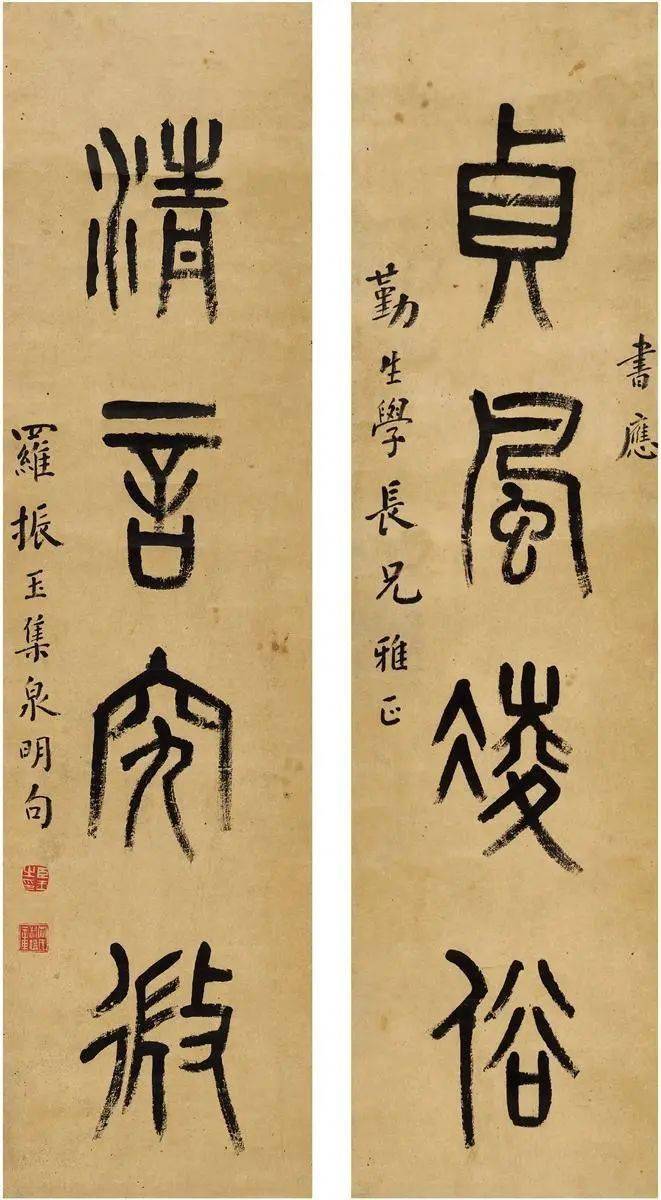 貞風凌俗
書應
勤生學長兄雅正
清言究微
羅振玉集泉明句